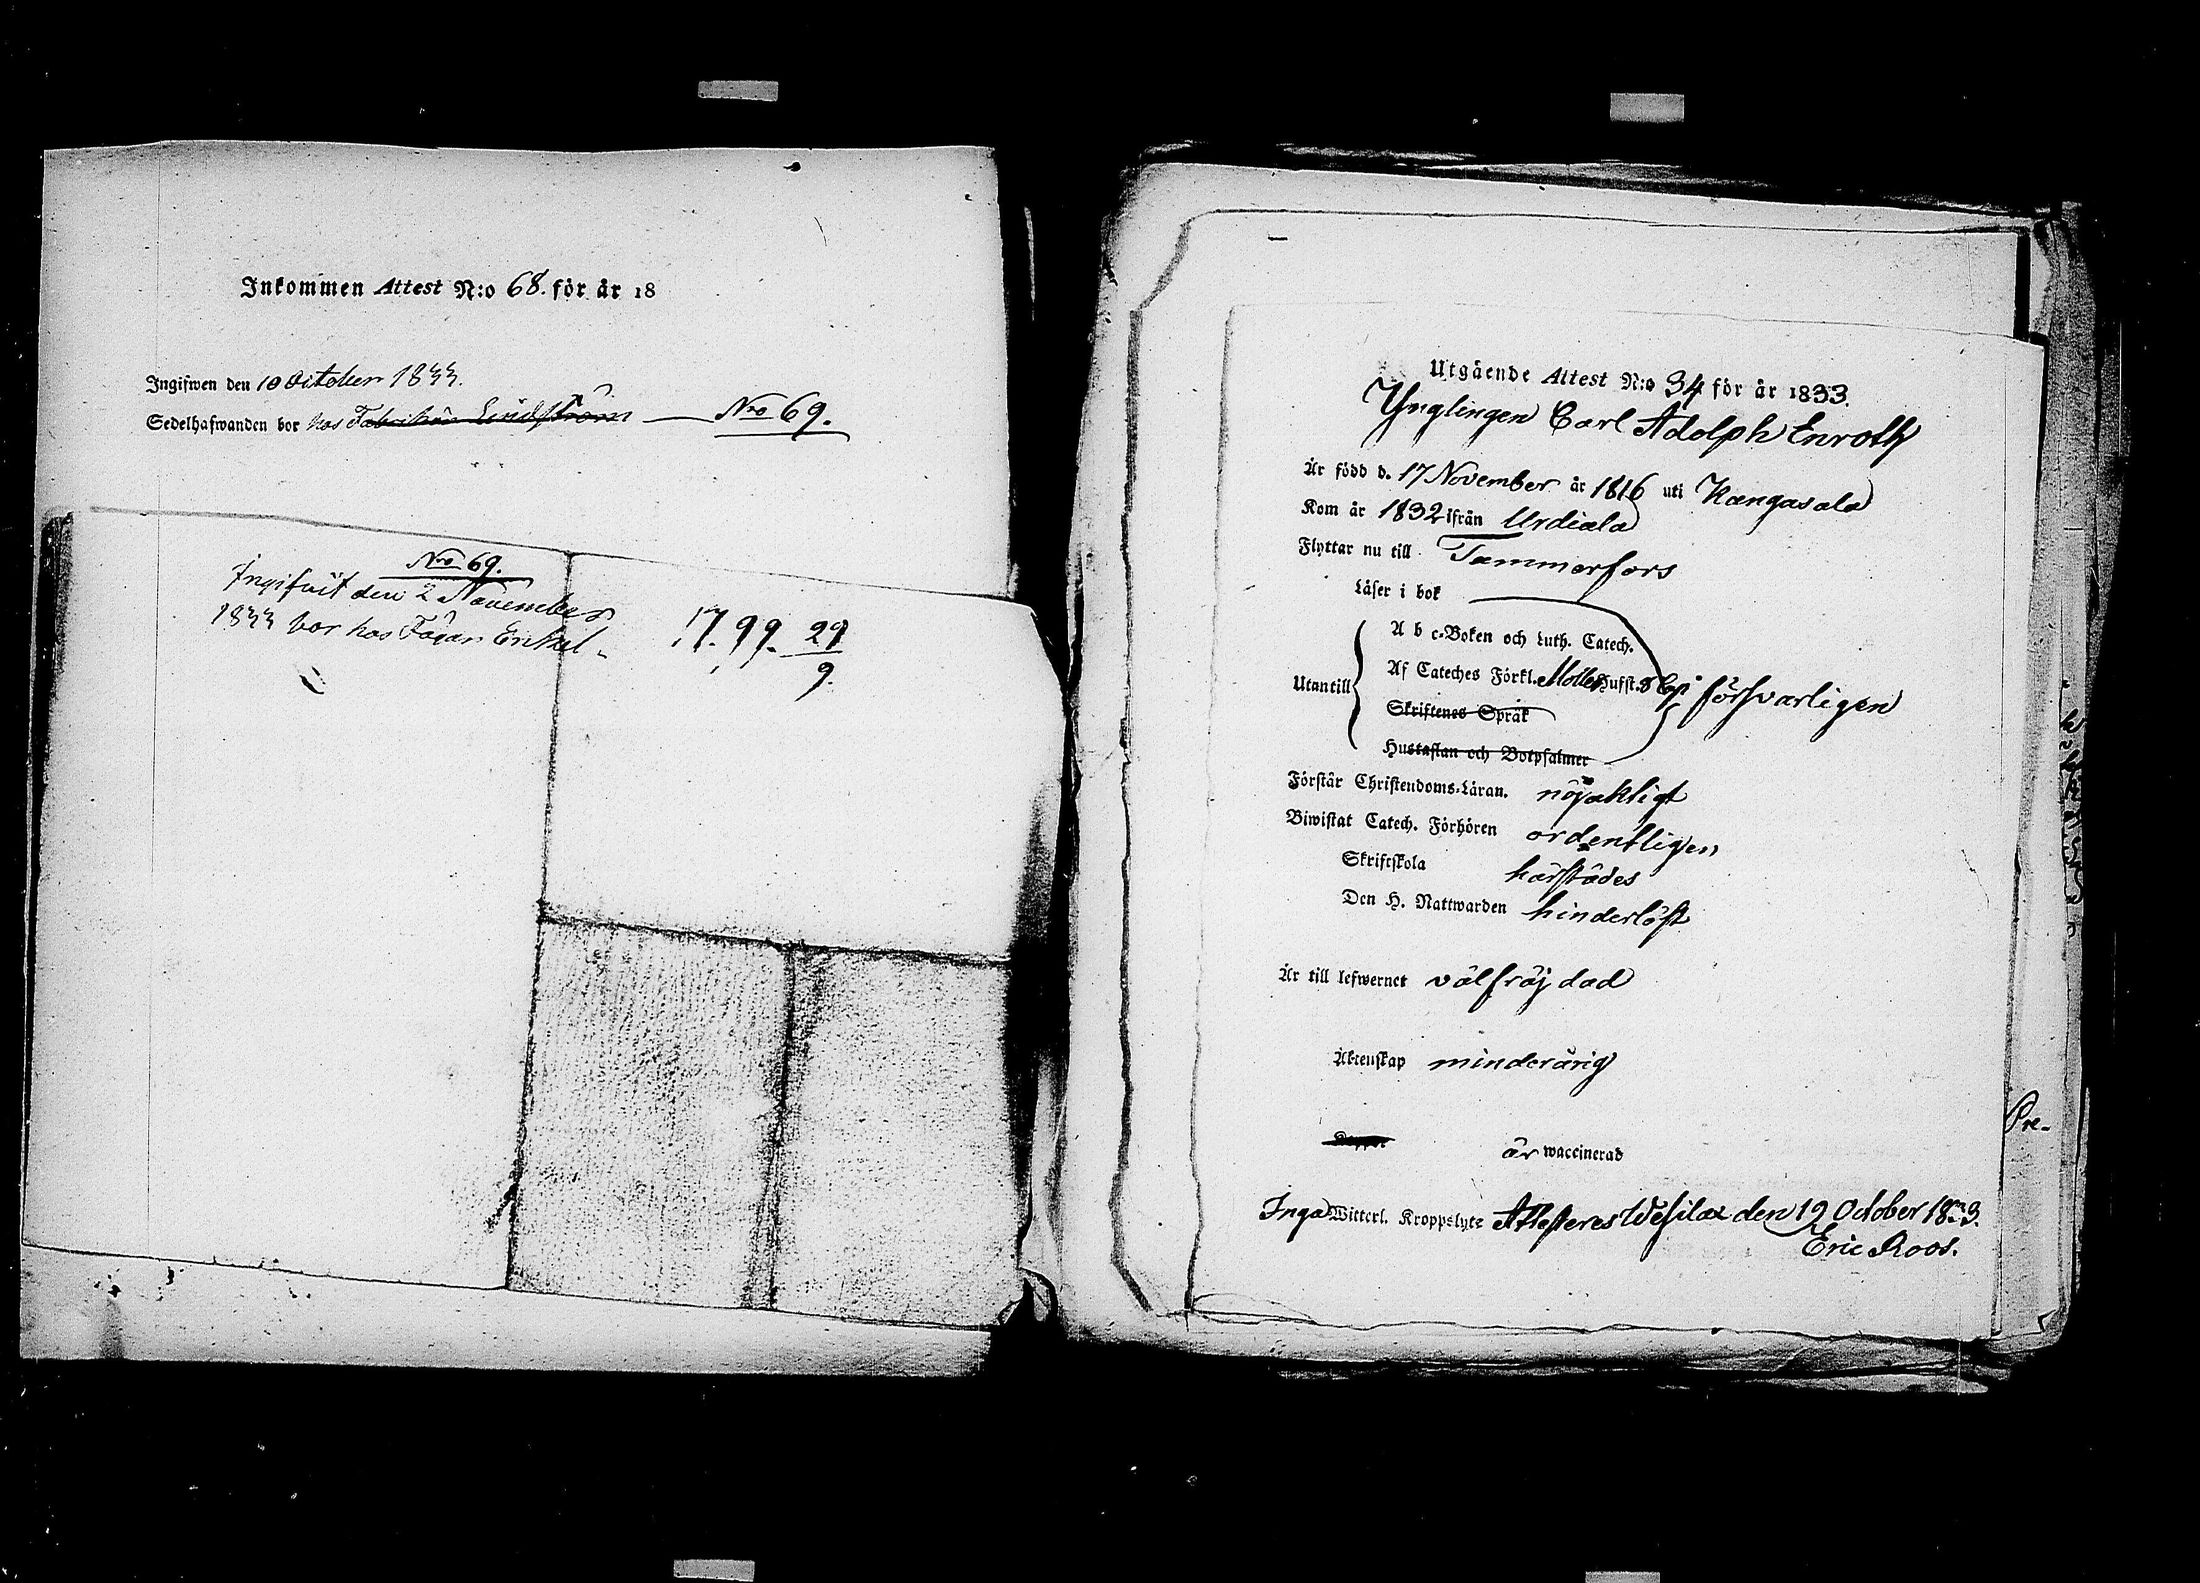 Inkommen Attest N:o 68. för år 18
Ingifwen den 10 October 1833.
Sedelhafwanden bor hos Fabrikör Lindström — Nro 69.
Nro 69.
Ingifvit den 2 November
1833 bor hos Fägar Enkel
17. 99. 29
9.
Utgående Attest N:o 34 för år 1833.
Ynglingen Carl Adolph Enroth
Är född d. 17 November år 1816 uti Kangasala
Kom år 1832 ifrån Urdiala
Flyttar nu till Tammerfors
Läser i bok
A b c-Boken och Luth. Catech.
Utantill Af Cateches Förkl. Hufst. försvarligen
Skriftenes Språk
Hustaflan och Botpsalmer
Förstår Christendoms-Läran. nöjaktigt
Biwistat Catech. Förhören ordentligen
Skriftskola härstädes
Den H. Nattwarden hinderlöst
Är till lefwernet välfräjdad
Äktenskap minderårig
är waccinerad
Inga Witterl. Kroppslyte Attesteres Wesilax den 19 October 1833.
Eric Roos.
Pre-